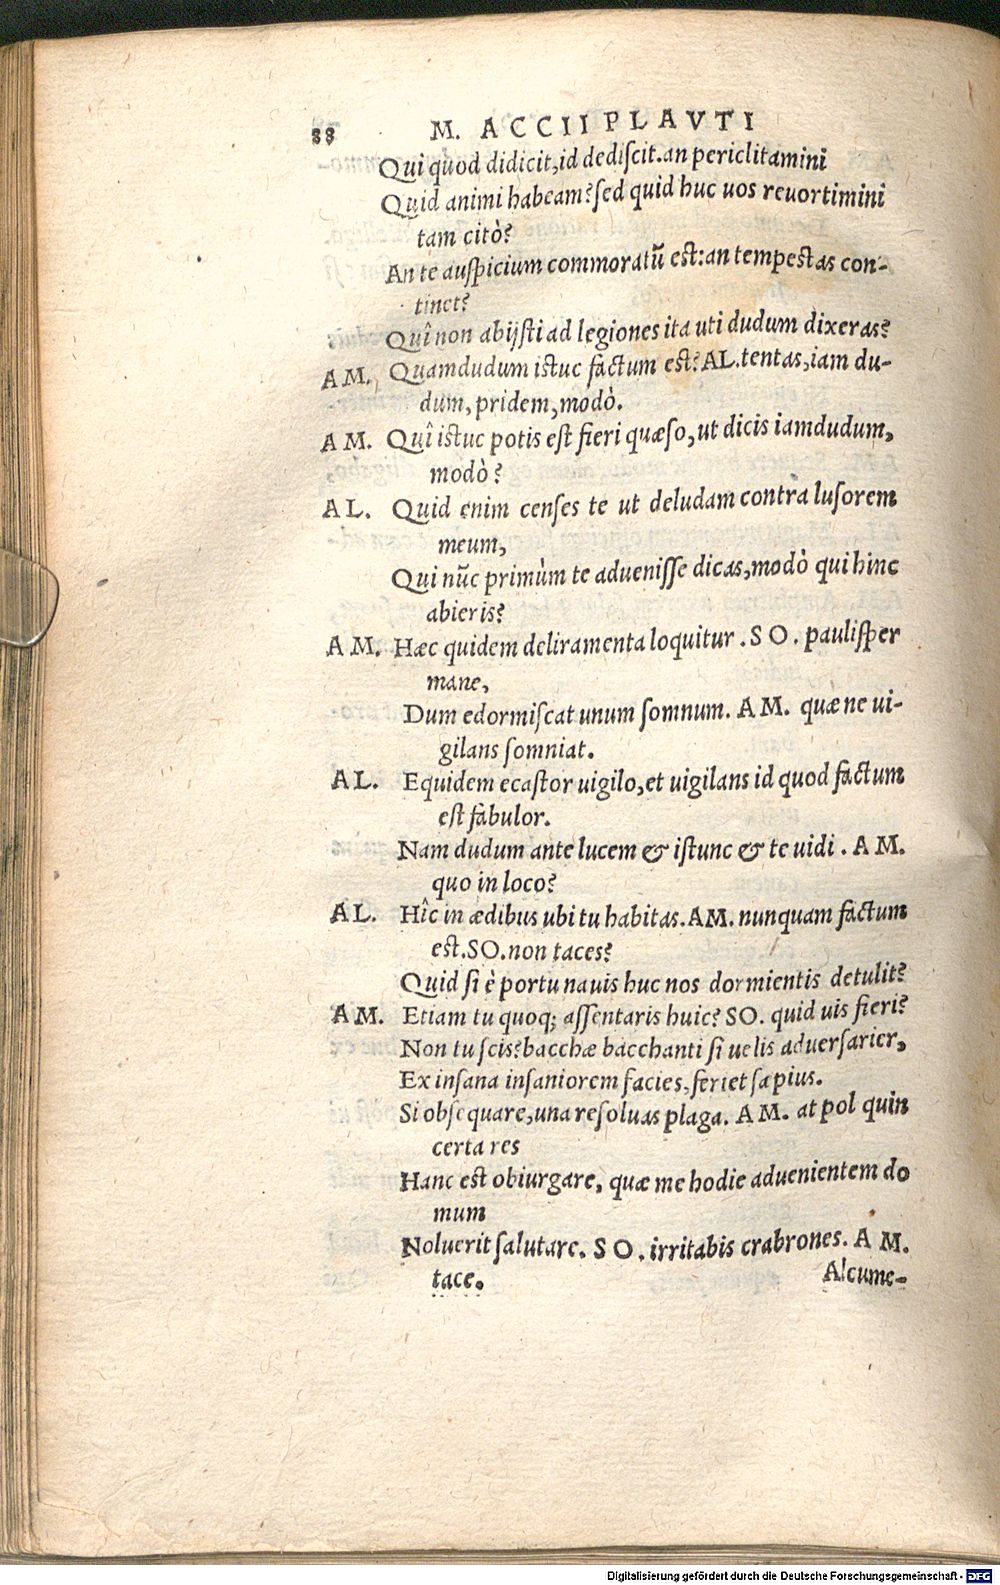 88 M. ACCII PLAVTI
Qui quod didicit, id dediſcit. an periclitamini
Quid animi habeam? ſed quid huc uos reuortimini
tam citò?
An te auſpicium commoratũ eſt: an tempeſtas con-
tinet?
Quî non abijſti ad legiones ita uti dudum dixeras?
AM. Quamdudum iſtuc factum eſt? AL. tentas, iam du-
dum, pridem, modò.
AM. Quî iſtuc potis eſt fieri quæſo, ut dicis iamdudum,
modò?
AL. Quid enim cenſes te ut deludam contra luſorem
meum,
Qui nũc primùm te adueniſſe dicas, modò qui hinc
abieris?
AM. Hæc quidem deliramenta loquitur. SO. pauliſper
mane,
Dum edormiſcat unum ſomnum. AM. quæ ne ui-
gilans ſomniat.
AL. Equidem ecaſtor uigilo, et uigilans id quod factum
eſt fabulor.
Nam dudum ante lucem & iſtunc & te uidi. AM.
quo in loco?
AL. Hîc in ædibus ubi tu habitas. AM. nunquam factum
eſt. SO. non taces?
Quid ſi è portu nauis huc nos dormientis detulit?
AM. Etiam tu quoq; aſſentaris huic? SO. quid uis fieri?
Non tu ſcis? bacchæ bacchanti ſi uelis aduerſarier,
Ex inſana inſaniorem facies, feriet ſæpius.
Si obſequare, una reſoluas plaga. AM. at pol quin
certa res
Hanc eſt obiurgare, quæ me hodie aduenientem do
mum
Noluerit ſalutare. SO. irritabis crabrones. AM.
tace. Alcume-
Digitalisierung gefördert durch die Deutsche Forschungsgemeinschaft - DFG